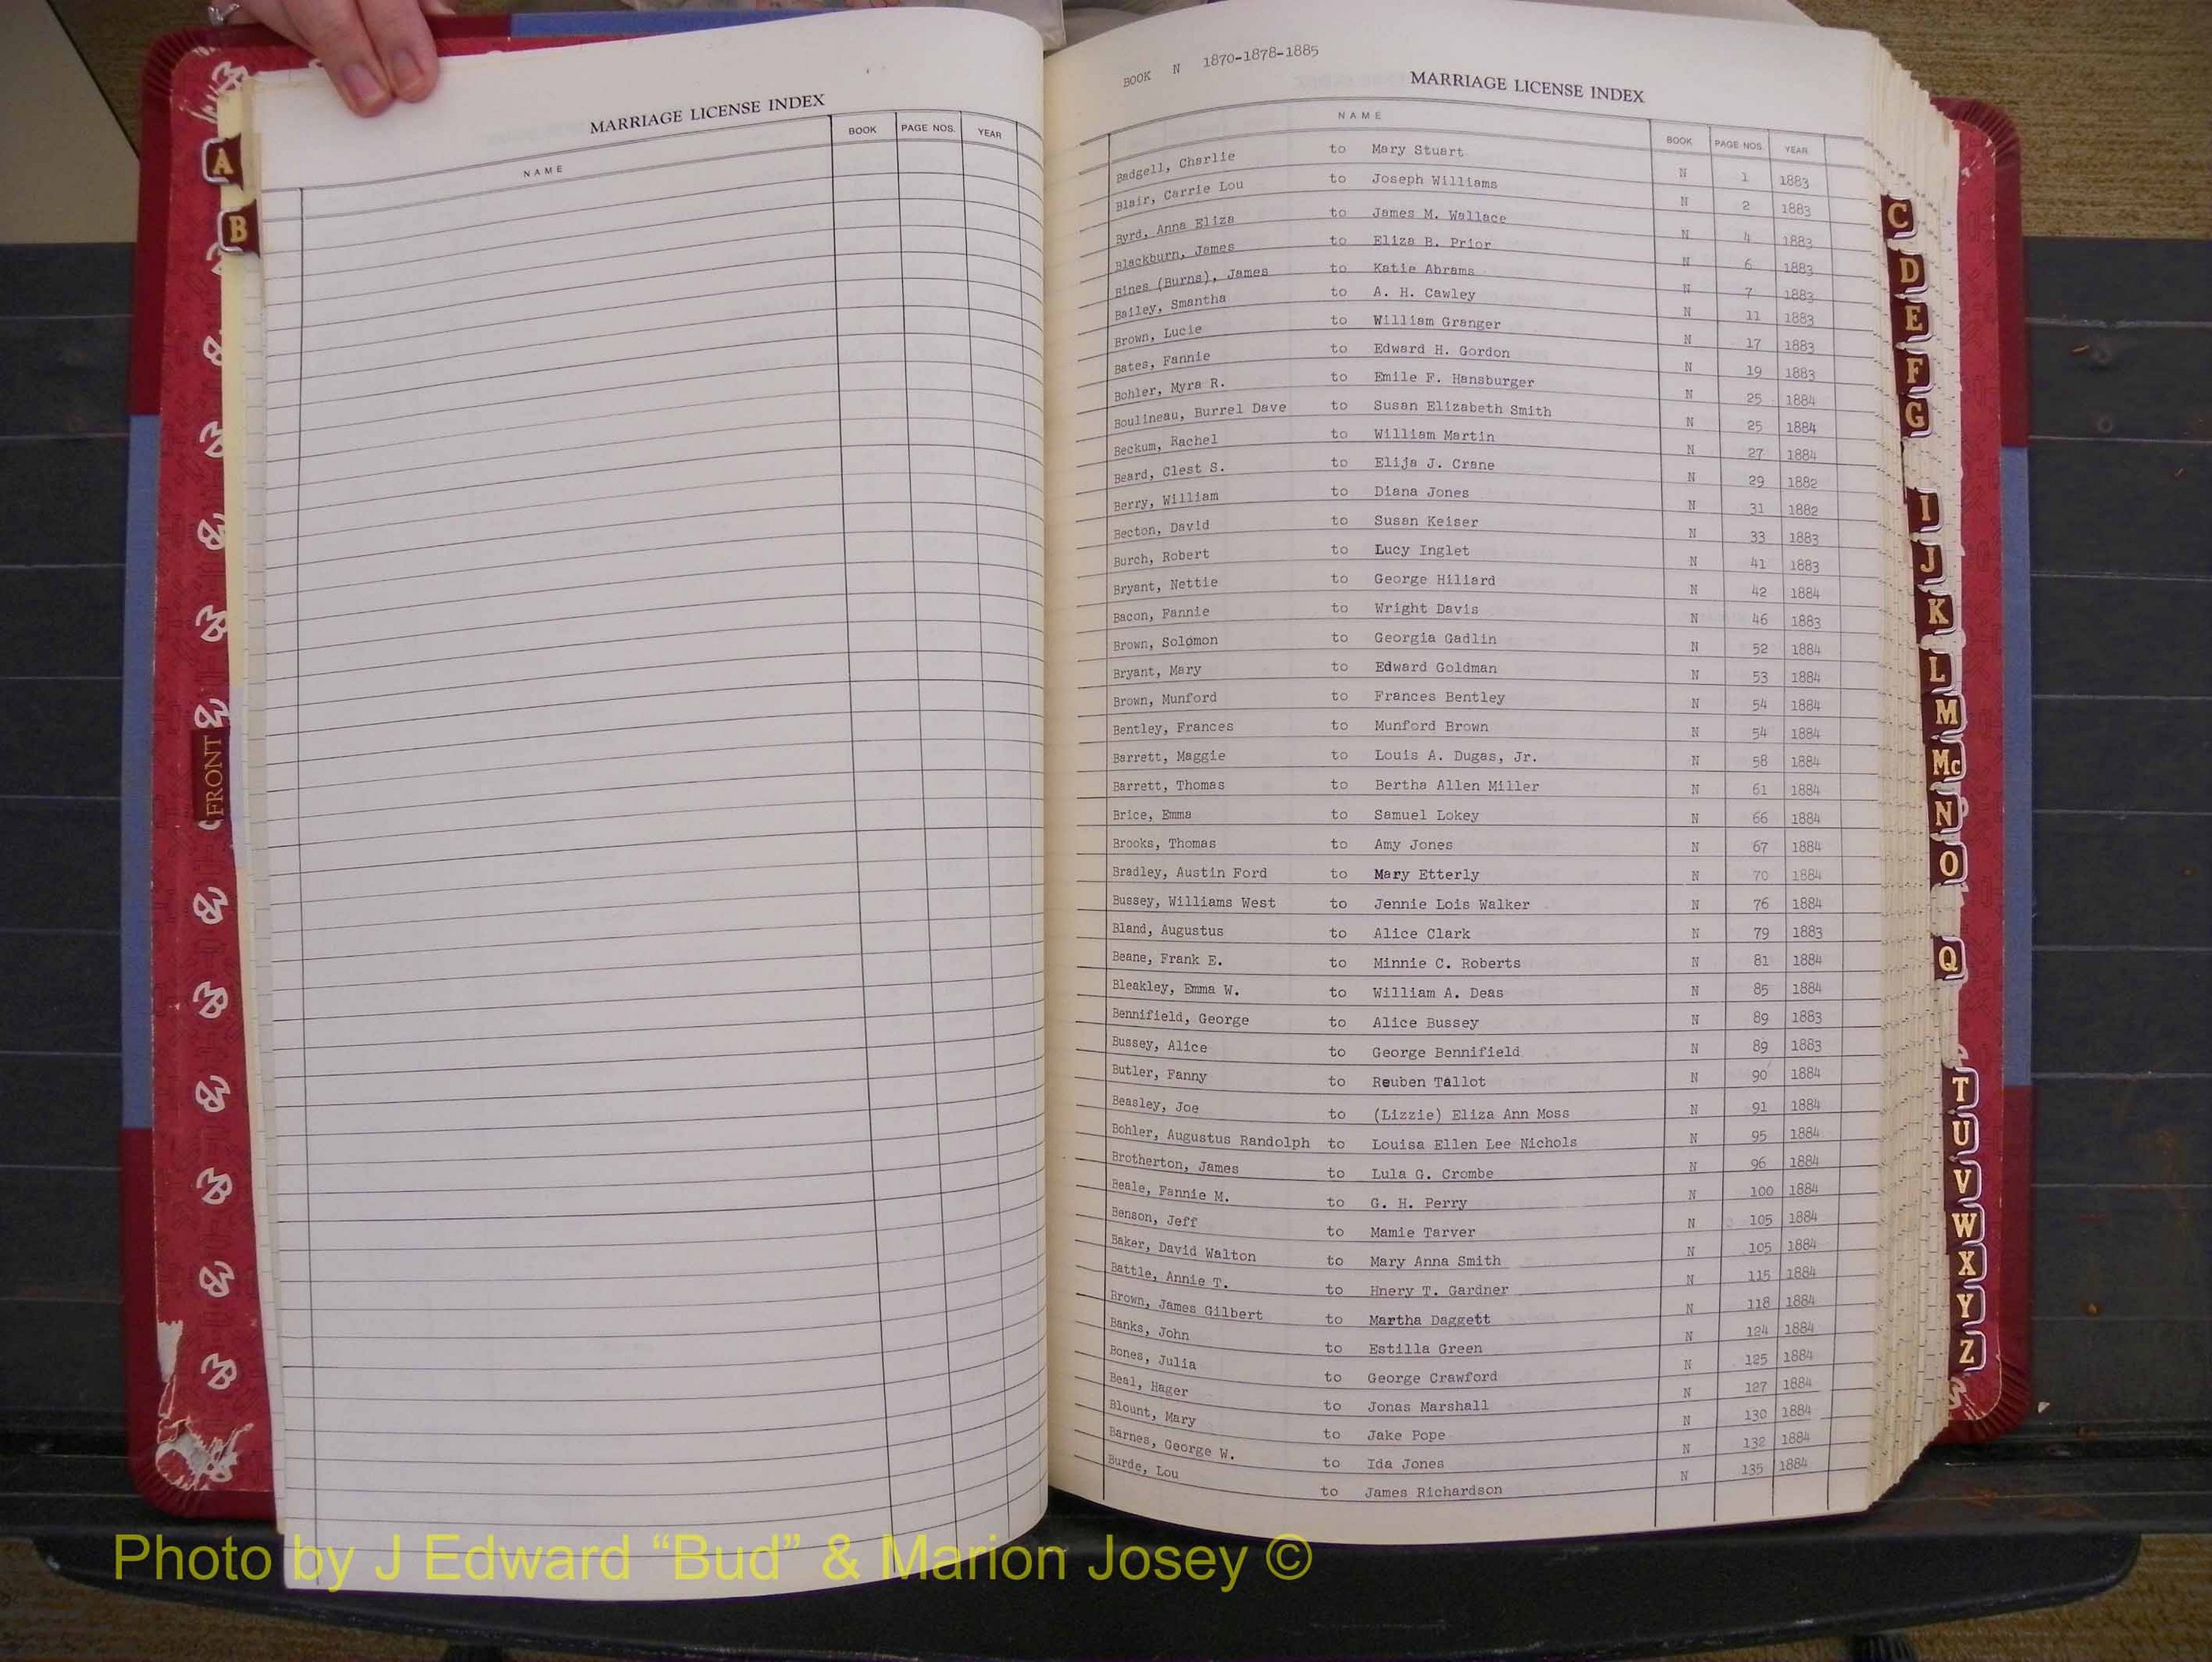 MARRIAGE LICENSE INDEX
NAME BOOK PAGE NOS. YEAR
A
B
FRONT
BOOK N 1870-1878-1885
MARRIAGE LICENSE INDEX
NAME BOOK PAGE NOS. YEAR
Badgell, Charlie to Mary Stuart N 1 1883
Blair, Carrie Lou to Joseph Williams N 2 1883
Byrd, Anna Eliza to James M. Wallace N 4 1883
Blackburn, James to Eliza B. Prior N 6 1883
Bines (Burns), James to Katie Abrams N 7 1883
Bailey, Smantha to A. H. Cawley N 11 1883
Brown, Lucie to William Granger N 17 1883
Bates, Fannie to Edward H. Gordon N 19 1883
Bohler, Myra R. to Emile F. Hansburger N 25 1884
Boulineau, Burrel Dave to Susan Elizabeth Smith N 25 1884
Beckum, Rachel to William Martin N 27 1884
Beard, Clest S. to Elija J. Crane N 29 1882
Berry, William to Diana Jones N 31 1882
Becton, David to Susan Keiser N 33 1883
Burch, Robert to Lucy Inglet N 41 1883
Bryant, Nettie to George Hillard N 42 1884
Bacon, Fannie to Wright Davis N 46 1883
Brown, Solomon to Georgia Gadlin N 52 1884
Bryant, Mary to Edward Goldman N 53 1884
Brown, Munford to Frances Bentley N 54 1884
Bentley, Frances to Munford Brown N 54 1884
Barrett, Maggie to Louis A. Dugas, Jr. N 58 1884
Barrett, Thomas to Bertha Allen Miller N 61 1884
Brice, Emma to Samuel Lokey N 66 1884
Brooks, Thomas to Amy Jones N 67 1884
Bradley, Austin Ford to Mary Etterly N 70 1884
Bussey, Williams West to Jennie Lois Walker N 76 1884
Bland, Augustus to Alice Clark N 79 1883
Beane, Frank E. to Minnie C. Roberts N 81 1884
Bleakley, Emma W. to William A. Deas N 85 1884
Bennifield, George to Alice Bussey N 89 1883
Bussey, Alice to George Bennifield N 89 1883
Butler, Fanny to Reuben Tallot N 90 1884
Beasley, Joe to (Lizzie) Eliza Ann Moss N 91 1884
Bohler, Augustus Randolph to Louisa Ellen Lee Nichols N 95 1884
Brotherton, James to Lula G. Crombe N 96 1884
Beale, Fannie M. to G. H. Perry N 100 1884
Benson, Jeff to Mamie Tarver N 105 1884
Baker, David Walton to Mary Anna Smith N 105 1884
Battle, Annie T. to Hnery T. Gardner N 115 1884
Brown, James Gilbert to Martha Daggett N 118 1884
Banks, John to Estilla Green N 124 1884
Bones, Julia to George Crawford N 125 1884
Beal, Hager to Jonas Marshall N 127 1884
Blount, Mary to Jake Pope N 130 1884
Barnes, George W. to Ida Jones N 132 1884
Burde, Lou to James Richardson N 135 1884
C
D
E
F
G
I
J
K
L
M
Mc
N
O
Q
T
U
V
W
X
Y
Z
Photo by J Edward “Bud” & Marion Josey ©